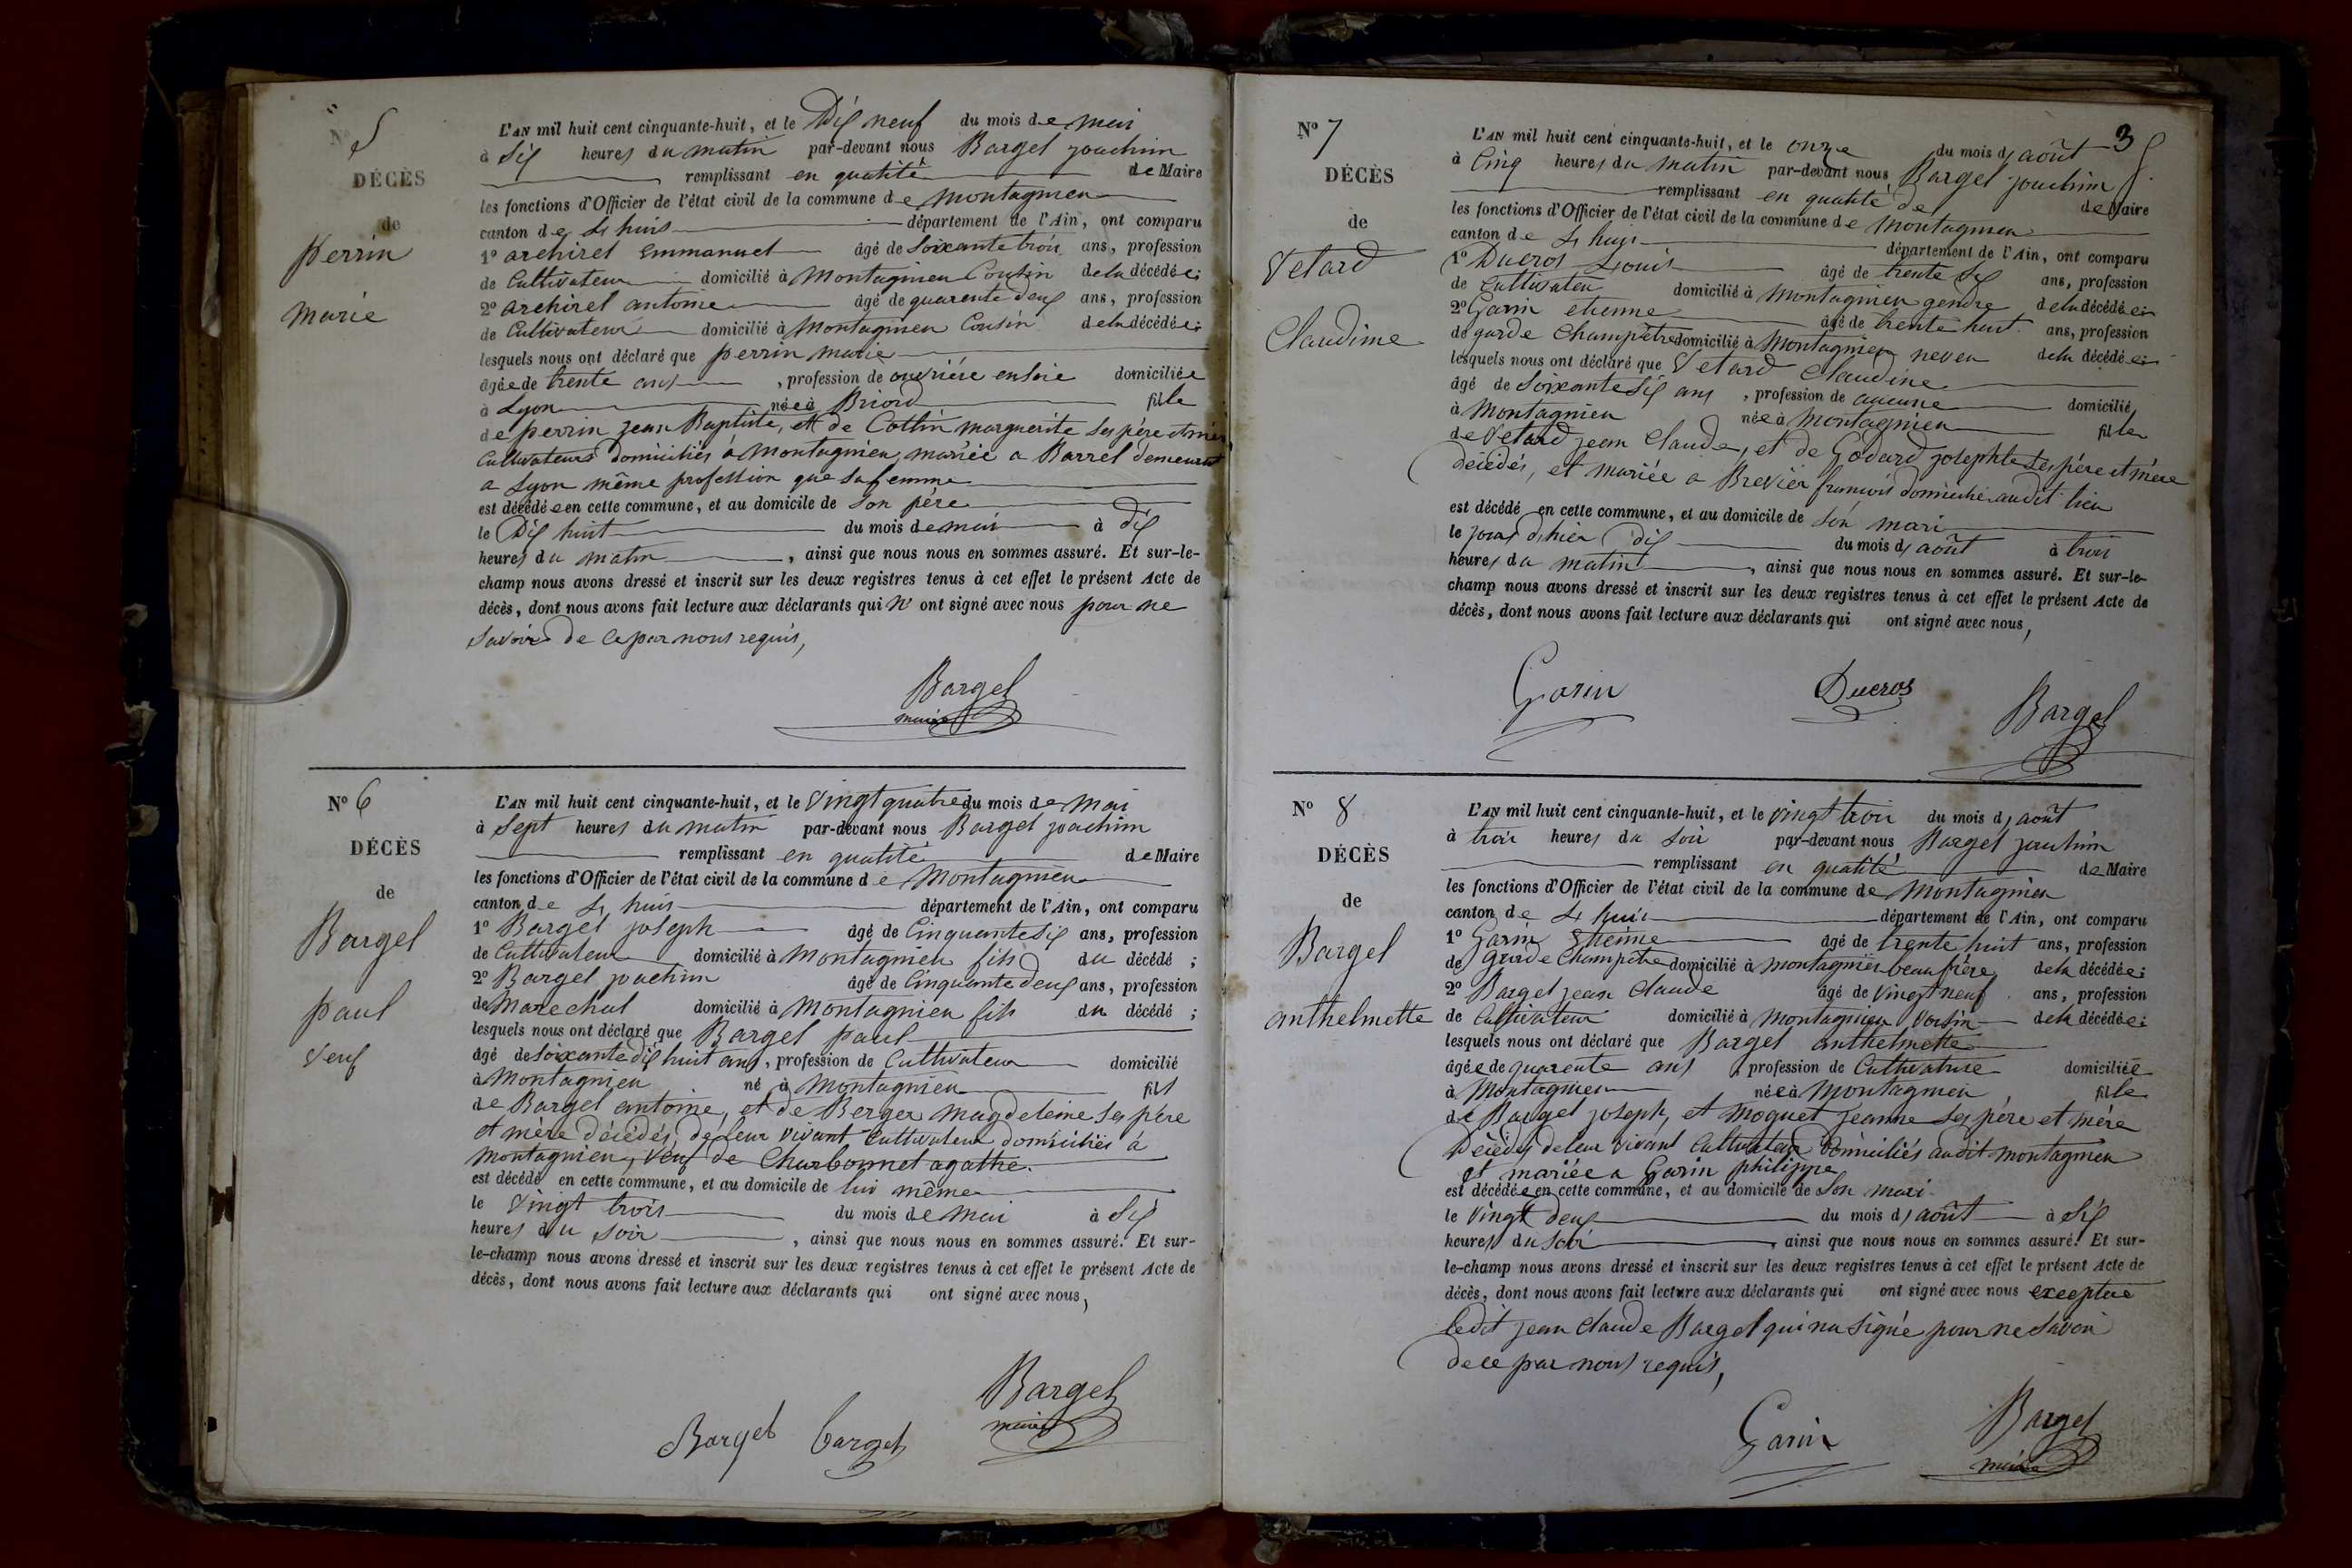 N° 5
DÉCÈS
de
perrin
marie
L'AN mil huit cent cinquante-huit, et le Dix neuf du mois de mai
à Six heures du matin par-devant nous Bargel joachim
remplissant en qualité de Maire
les fonctions d'Officier de l'état civil de la commune de montagnieu
canton de L huis département de l'Ain, ont comparu
1° archirel Emmanuel âgé de Soixante trois ans, profession
de Cultivateur domicilié à Montagnieu Cousin de la décédée;
2° archirel antoine âgé de quarente deux ans, profession
de Cultivateur domicilié à Montagnieu Cousin de la décédée;
lesquels nous ont déclaré que perrin marie
âgée de trente ans, profession de ouvrière en soie domiciliée
à Lyon née à Briord fille
de perrin jean Baptiste, et de Cottin marguerite Ses père et mère
Cultivateurs domiciliés à Montagnieu, mariée a Barrel demeurant
a Lyon même profession que sa femme
est décédée en cette commune, et au domicile de Son père
le Dix huit du mois de mai à dix
heures du matin, ainsi que nous nous en sommes assuré. Et sur-le-
champ nous avons dressé et inscrit sur les deux registres tenus à cet effet le présent Acte de
décès, dont nous avons fait lecture aux déclarants qui N' ont signé avec nous pour ne
Savoir de ce par nous requis,
Bargel
maire
N° 6
DÉCÈS
de
Bargel
paul
veuf
L'AN mil huit cent cinquante-huit, et le Vingt quatre du mois de Mai
à Sept heures du matin par-devant nous Bargel joachim
remplissant en qualité de Maire
les fonctions d'Officier de l'état civil de la commune de Montagnieu
canton de L huis département de l'Ain, ont comparu
1° Bargel joseph âgé de Cinquante six ans, profession
de Cultivateur domicilié à Montagnieu fils du décédé;
2° Bargel joachim âgé de Cinquante deux ans, profession
de Marechal domicilié à Montagnieu fils du décédé;
lesquels nous ont déclaré que Bargel paul
âgé de soixante dix huit ans, profession de Cultivateur domicilié
à Montagnieu né à Montagnieu fils
de Bargel antoine, et de Berger magdeleine Ses père
et mère décédés, de leur vivant Cultivateur domiciliés à
montagnieu, veuf de Charbonnet agathe.
est décédé en cette commune, et au domicile de lui même
le Vingt trois du mois de mai à Six
heures du soir, ainsi que nous nous en sommes assuré. Et sur-
le-champ nous avons dressé et inscrit sur les deux registres tenus à cet effet le présent Acte de
décès, dont nous avons fait lecture aux déclarants qui ont signé avec nous,
Bargel bargel Bargel
maire
3
N° 7
DÉCÈS
de
Vetard
Claudine
L'AN mil huit cent cinquante-huit, et le onze du mois d, août
à Cinq heures du matin par-devant nous Bargel joachim
remplissant en qualité de de Maire
les fonctions d'Officier de l'état civil de la commune de Montagnieu
canton de L huis département de l'Ain, ont comparu
1° Ducros Louis âgé de trente six ans, profession
de Cultivateu domicilié à Montagnieu gendre de la décédée;
2° Garin etienne âgé de trente huit ans, profession
de garde Champêtre domicilié à Montagnieu neveu de la décédée;
lesquels nous ont déclaré que Vetard Claudine
âgé de Soixante six ans, profession de aucune domicilié
à Montagnieu née à Montagnieu fille
de Vetard jean Claude, et de Godard josephte Ses père et mère
décédés, et mariée a Brevier francois domicilié audit lieu
est décédé en cette commune, et au domicile de Son mari
le jour d'hier dix du mois d, août à trois
heures du matin, ainsi que nous nous en sommes assuré. Et sur-le-
champ nous avons dressé et inscrit sur les deux registres tenus à cet effet le présent Acte de
décès, dont nous avons fait lecture aux déclarants qui ont signé avec nous,
Garin Ducros Bargel
N° 8
DÉCÈS
de
Bargel
anthelmette
L'AN mil huit cent cinquante-huit, et le vingt trois du mois d, août
à trois heures du soir par-devant nous Bargel joachim
remplissant en qualité de Maire
les fonctions d'Officier de l'état civil de la commune de Montagnieu
canton de L huis département de l'Ain, ont comparu
1° Garin Etienne âgé de trente huit ans, profession
de garde Champêtre domicilié à montagnieu beau frère de la décédée;
2° Bargel jean Claude âgé de vingt neuf ans, profession
de Cultivateur domicilié à Montagnieu voisin de la décédée;
lesquels nous ont déclaré que Bargel anthelmette
âgée de quarente ans, profession de Cultivatrice domiciliée
à Montagnieu née à Montagnieu fille
de Bargel joseph, et moquet jeanne Ses père et mère
Décédés de leur vivant Cultivateur Domiciliés audit montagnieu
et mariée a Garin philippe
est décédée en cette commune, et au domicile de Son mari
le vingt deux du mois d, août à Six
heures du Soir, ainsi que nous nous en sommes assuré. Et sur-
le-champ nous avons dressé et inscrit sur les deux registres tenus à cet effet le présent Acte de
décès, dont nous avons fait lecture aux déclarants qui ont signé avec nous exceptée
ledit jean Claude Bargel qui na signé pour ne Savoir
de ce par nous requis,
Garin Bargel
maire